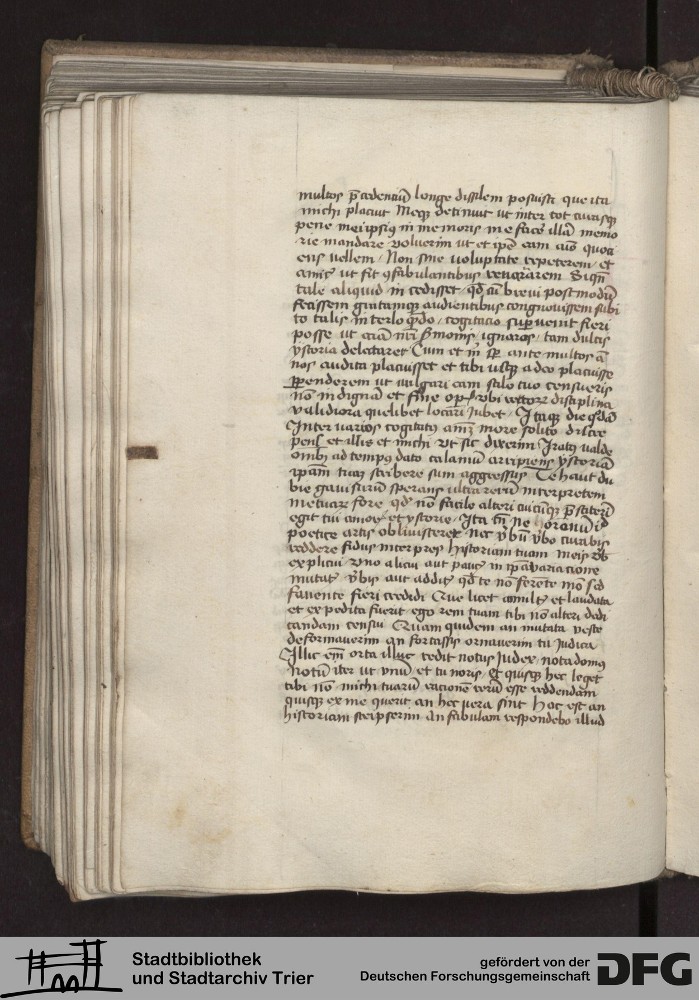 multos p̄cedentiū longe dissilem posuisti que ita
michi placuit Meqꝫ detinuit ut inter tot curasqꝫ
pene mei ipsiꝰ in memoris me facēt illā memo
rie mandare voluerim ut et ip̄e eam aīo quoci
ens vellem / Non sine voluptate repeterem / et
amicis ut fit ꝯfabulantibus renarrarem Si qn̄
tale aliquid in cedisset / qd̄ cū brevi post modū
fecissem gratamqꝫ audientibus congnouissem subi
to talis interloquēdo / cogitacio supvenit fieri
posse ut eciā nr̄i s̄monis / ignaros / tam dulcis
ystoria delectaret Cum et m̄ sp̄ ante multos ā
nos audita placuisset et tibi usqꝫ adeo placuisse
ꝑpenderem ut vulgari eam stilo tuo censueris
nō indignā et fine opis ubi rethorꝫ disciplina
validiora quelibet locari iubet / Itaqꝫ die qdā
Inter varios cogitatꝰ aīm more solito discer
pens̄ et illis et michi ut sic dixerim Iratꝰ valde
om̄ibꝫ ad tempus dato calamū arripiens ystoriā
ip̄am tuaꝫ scribere sum aggressus Te haut du
bie gavisurū sperans ultra rerū interpretem
me tuarꝫ fore qd̄ nō facile alteri cuicūqꝫ p̄stiteri
egit tui amor et ystorie / Ita tn̄ ne oranū id
poetice artis oblivisterer Nec v̄bū v̄bo curabis
reddere fidus interpres Historiam tuam meis v̄b
explicui vno alicui aut paucꝭ in ip̄a variacione
mutatꝭ v̄bis aut additꝭ qd̄ te nō ferēte mō sꝫ
favente fieri credidi Que licet a multꝭ et laudata
et expedita fuerit ego rem tuam tibi nō alteri dedi
candam censui Quam quidem an mutata veste
deformaverim an fortassis ornaverim tu iudica
Illuc em̄ orta illuc redit notus Iudex / nota domꝰ
Notū iter ut vnū et tu noris / Et quisqꝫ hec leget
tibi nō michi tuarū racionē rerū esse reddendam
quisqꝫ ex me querit an hec vera sint Hoc est an
historiam scripserim an fabulam respondebo illud
Stadtbibliothek
und Stadtarchiv Trier
gefördert von der
Deutschen Forschungsgemeinschaft
DFG